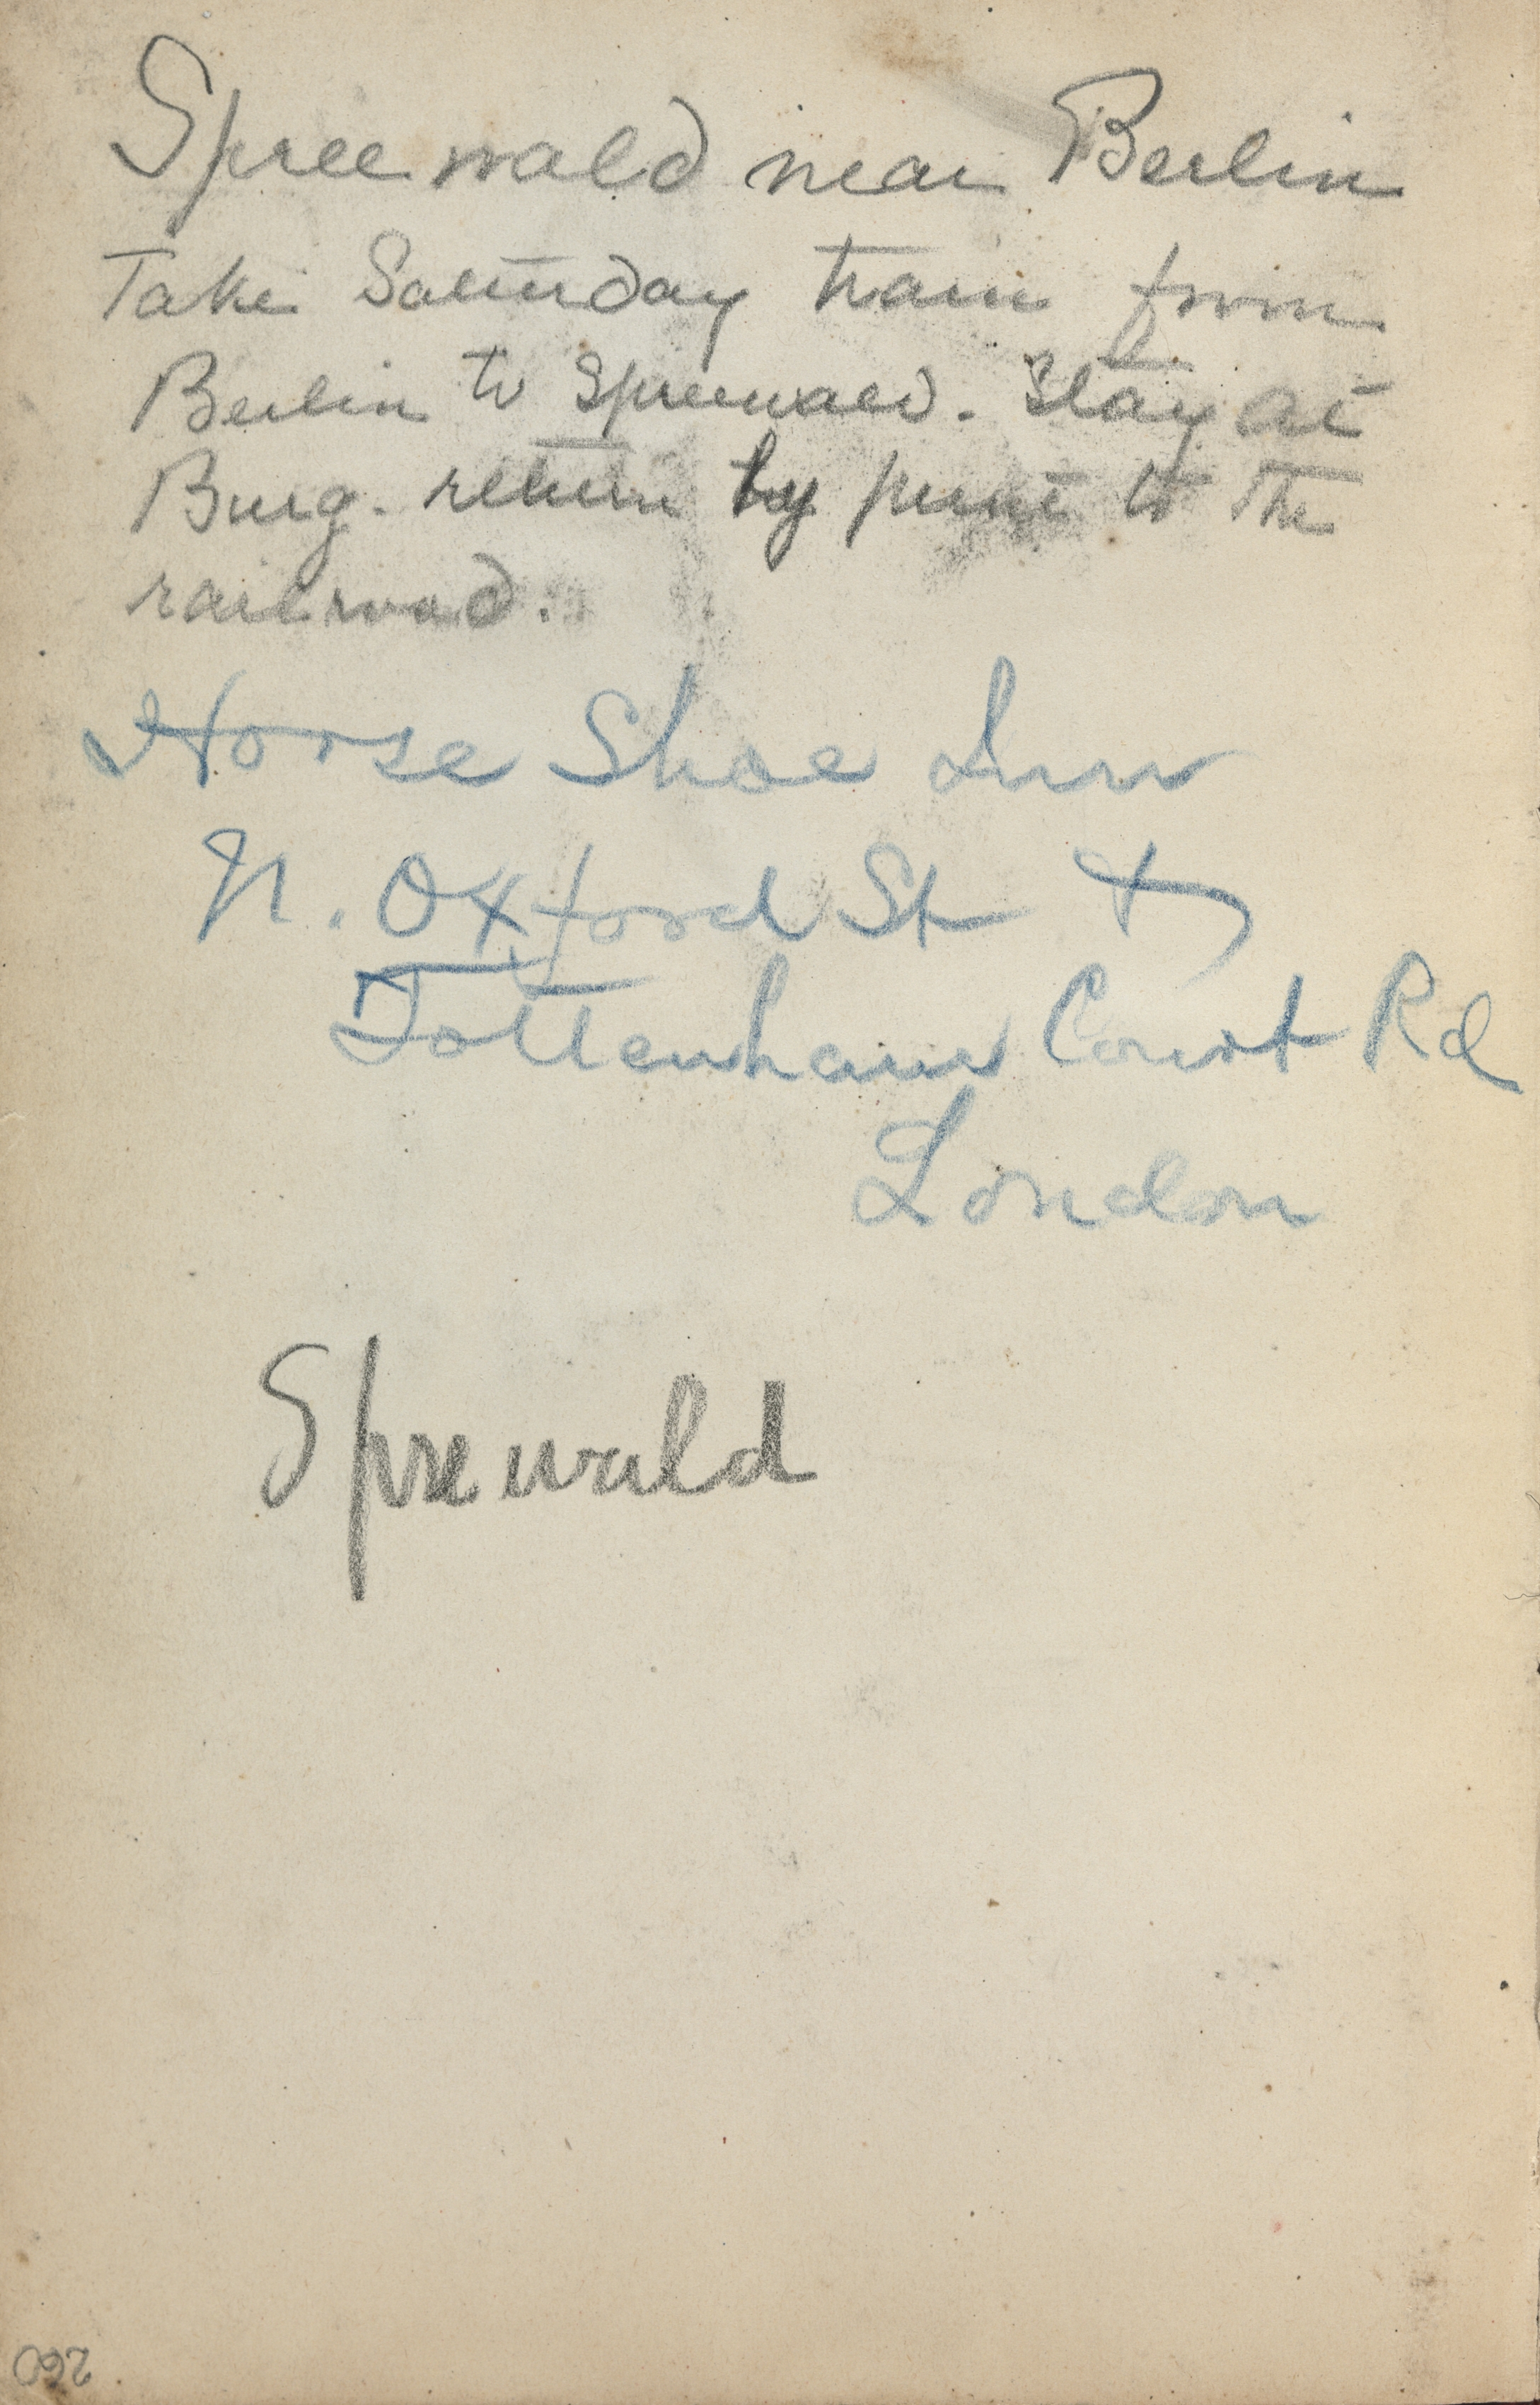 Spreewald near Berlin
Take Saturday train from
Berlin to Spreewald. Stay at
Burg. return by punt to the
railroad.
Horse Shoe Inn
N. Oxford St &
Tottenham Court Rd
London
Spreewald
260